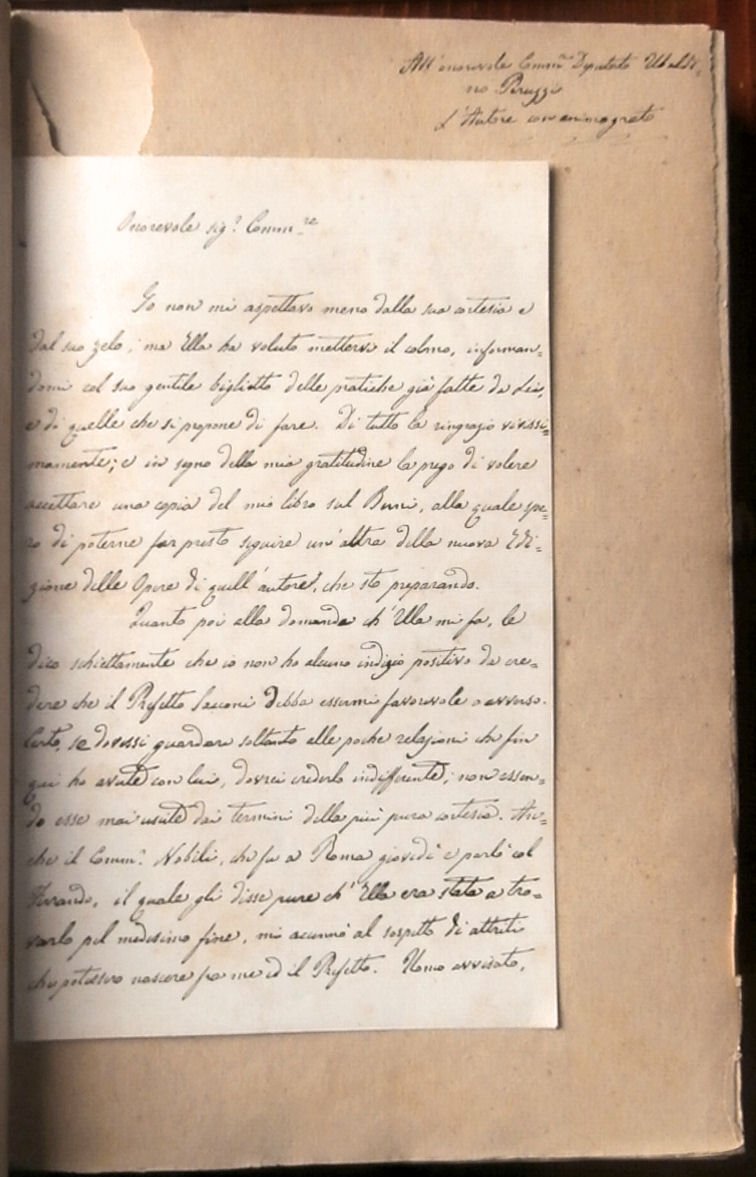 All'onorevole Comm.re Deputato Ubaldi-
no Peruzzi
L'Autore con animo grato
Onorevole sig.r Comm.re
Io non mi aspettavo meno dalla sua cortesia e
dal suo zelo; ma Ella ha voluto mettervi il colmo, informan=
domi col suo gentile biglietto delle pratiche già fatte da Lei,
e di quelle che si propone di fare. Di tutto la ringrazio vivissi=
mamente; e in segno della mia gratitudine la prego di volere
accettare una copia del mio libro sul Berni, alla quale spe=
ro di poterne far presto seguire un'altra della nuova Edi=
zione delle Opere di quell'autore, che sto preparando.
Quanto poi alla domanda ch'Ella mi fa, le
dico schiettamente che io non ho alcuno indizio positivo da cre=
dere che il Prefetto debba essermi favorevole o avverso.
Certo, se dovessi guardare soltanto alle poche relazioni che fin
qui ho avute con lui, dovrei crederlo indifferente; non essen=
do esse mai uscite dai termini della più pura cortesia. An=
che il Comm.r Nobili, che fu a Roma giovedì e parlò col
Ferrando, il quale gli disse pure ch'Ella era stata a tro=
varlo pel medesimo fine, mi accennò al sospetto di attriti
che potessero nascere fra me ed il Prefetto. Uomo avvisato,